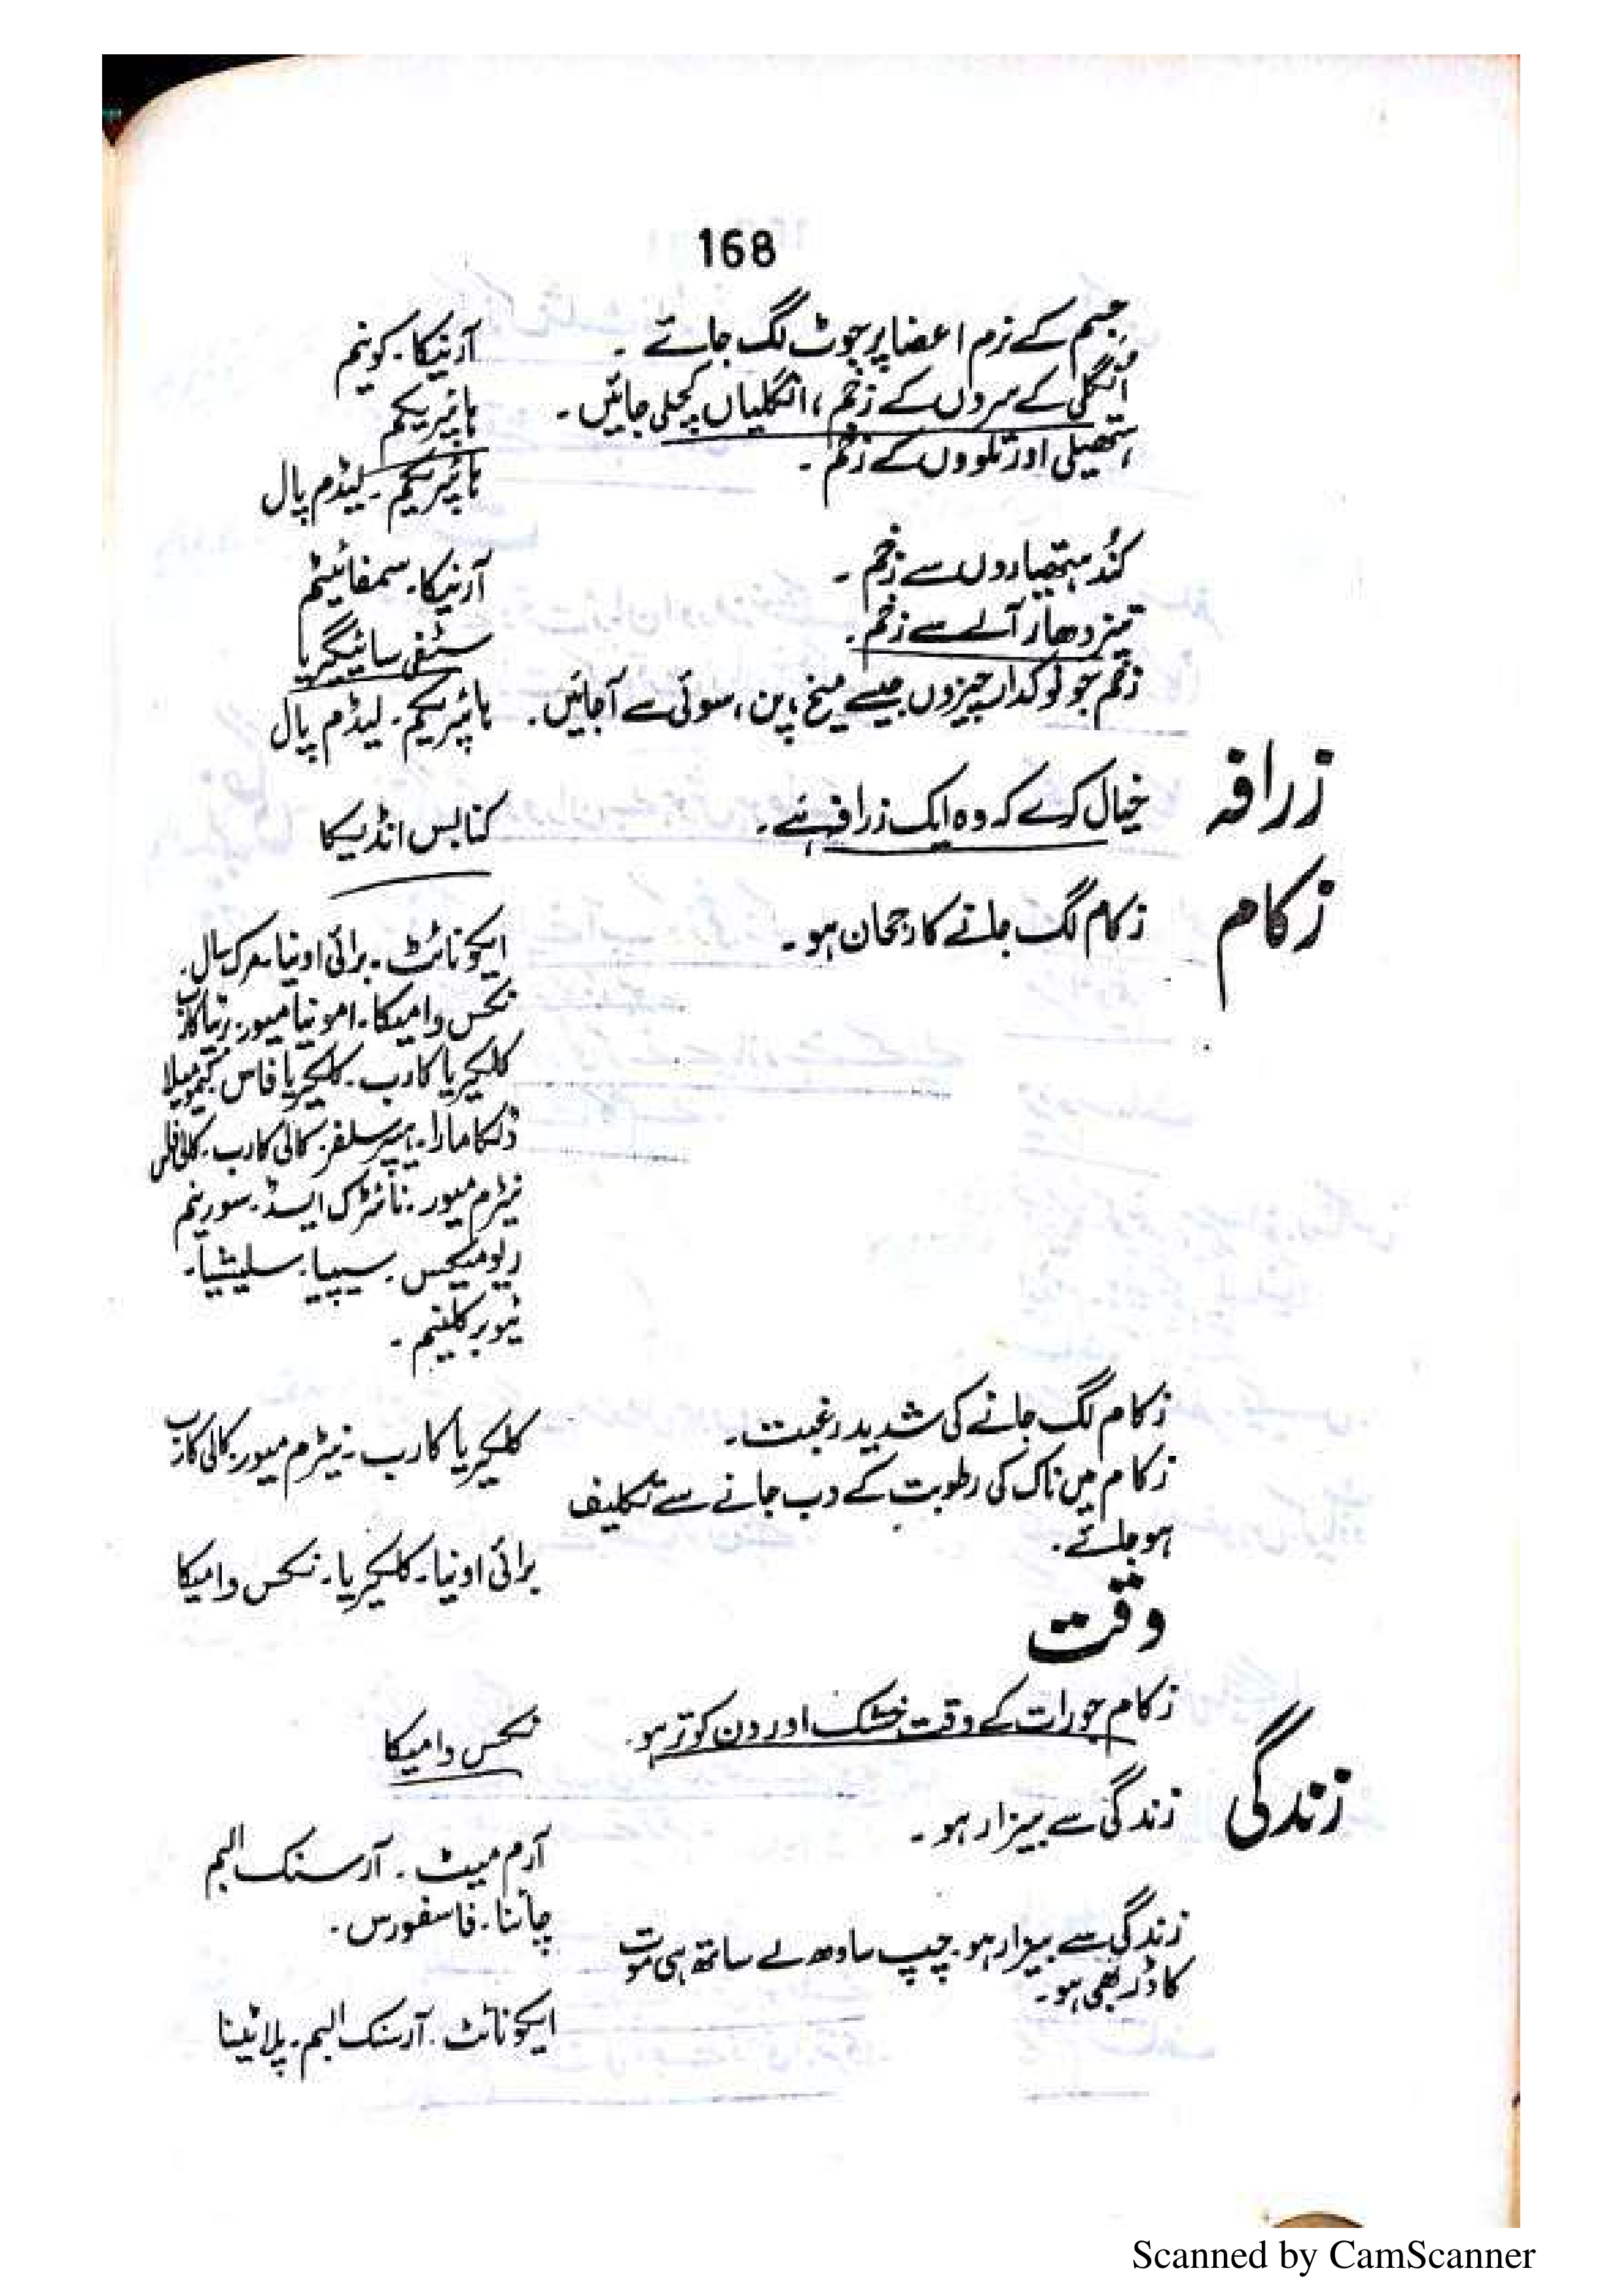 168
جسم کے نرم اعضا پر چوٹ لگ جائے ۔ آرنیکا۔ کونیم
اُنگلی کے سروں کے زخم، انگلیاں کچلی جائیں ۔ ہائپریکم
ہتھیلی اور تلووں کے زخم ۔ ہائپریکم ۔ لیڈم پال
کُند ہتھیاروں سے زخم ۔ آرنیکا۔ سمفائیٹم
تیز دھار آلے سے زخم ۔ سٹفی سائیگریا
زخم جو نوکدار چیزوں جیسے میخ، پن، سوئی سے آجائیں ۔ ہائپریکم ۔ لیڈم پال
زرافہ خیال کرے کہ وہ ایک زرافہ ہے ۔ کنابس انڈیکا
زکام زکام لگ جانے کا رجحان ہو ۔ ایکونائٹ ۔ برائی اونیا۔ مرک سال۔
نکس وامیکا ۔ امونیا میور۔ کارب
کلکیریا کارب ۔ کلکیریا فاس کیمومیلا
ڈلکامارا ۔ ہیپر سلفر۔ کالی کارب ۔
نیٹرم میور ۔ نائٹرک ایسڈ ۔ سورینم
ریومیکس ۔ سیپیا ۔ سلیشیا ۔
ٹیوبرکلینم ۔
زکام لگ جانے کی شدید رغبت ۔ کلکیریا کارب ۔ نیٹرم میور۔ کالی کارب
زکام میں ناک کی رطوبت کے دب جانے سے تکلیف
ہو جائے ۔ برائی اونیا ۔ کلکیریا ۔ نکس وامیکا
وقت
زکام جو رات کے وقت خشک اور دن کو تر ہو۔ نکس وامیکا
زندگی زندگی سے بیزار ہو ۔ آرم میٹ ۔ آرسنک البم
چائنا ۔ فاسفورس ۔
زندگی سے بیزار ہو۔ چپ سادھ لے ساتھ ہی موت
کا ڈر بھی ہو ۔ ایکونائٹ ۔ آرسنک البم ۔ پلاٹینا
Scanned by CamScanner